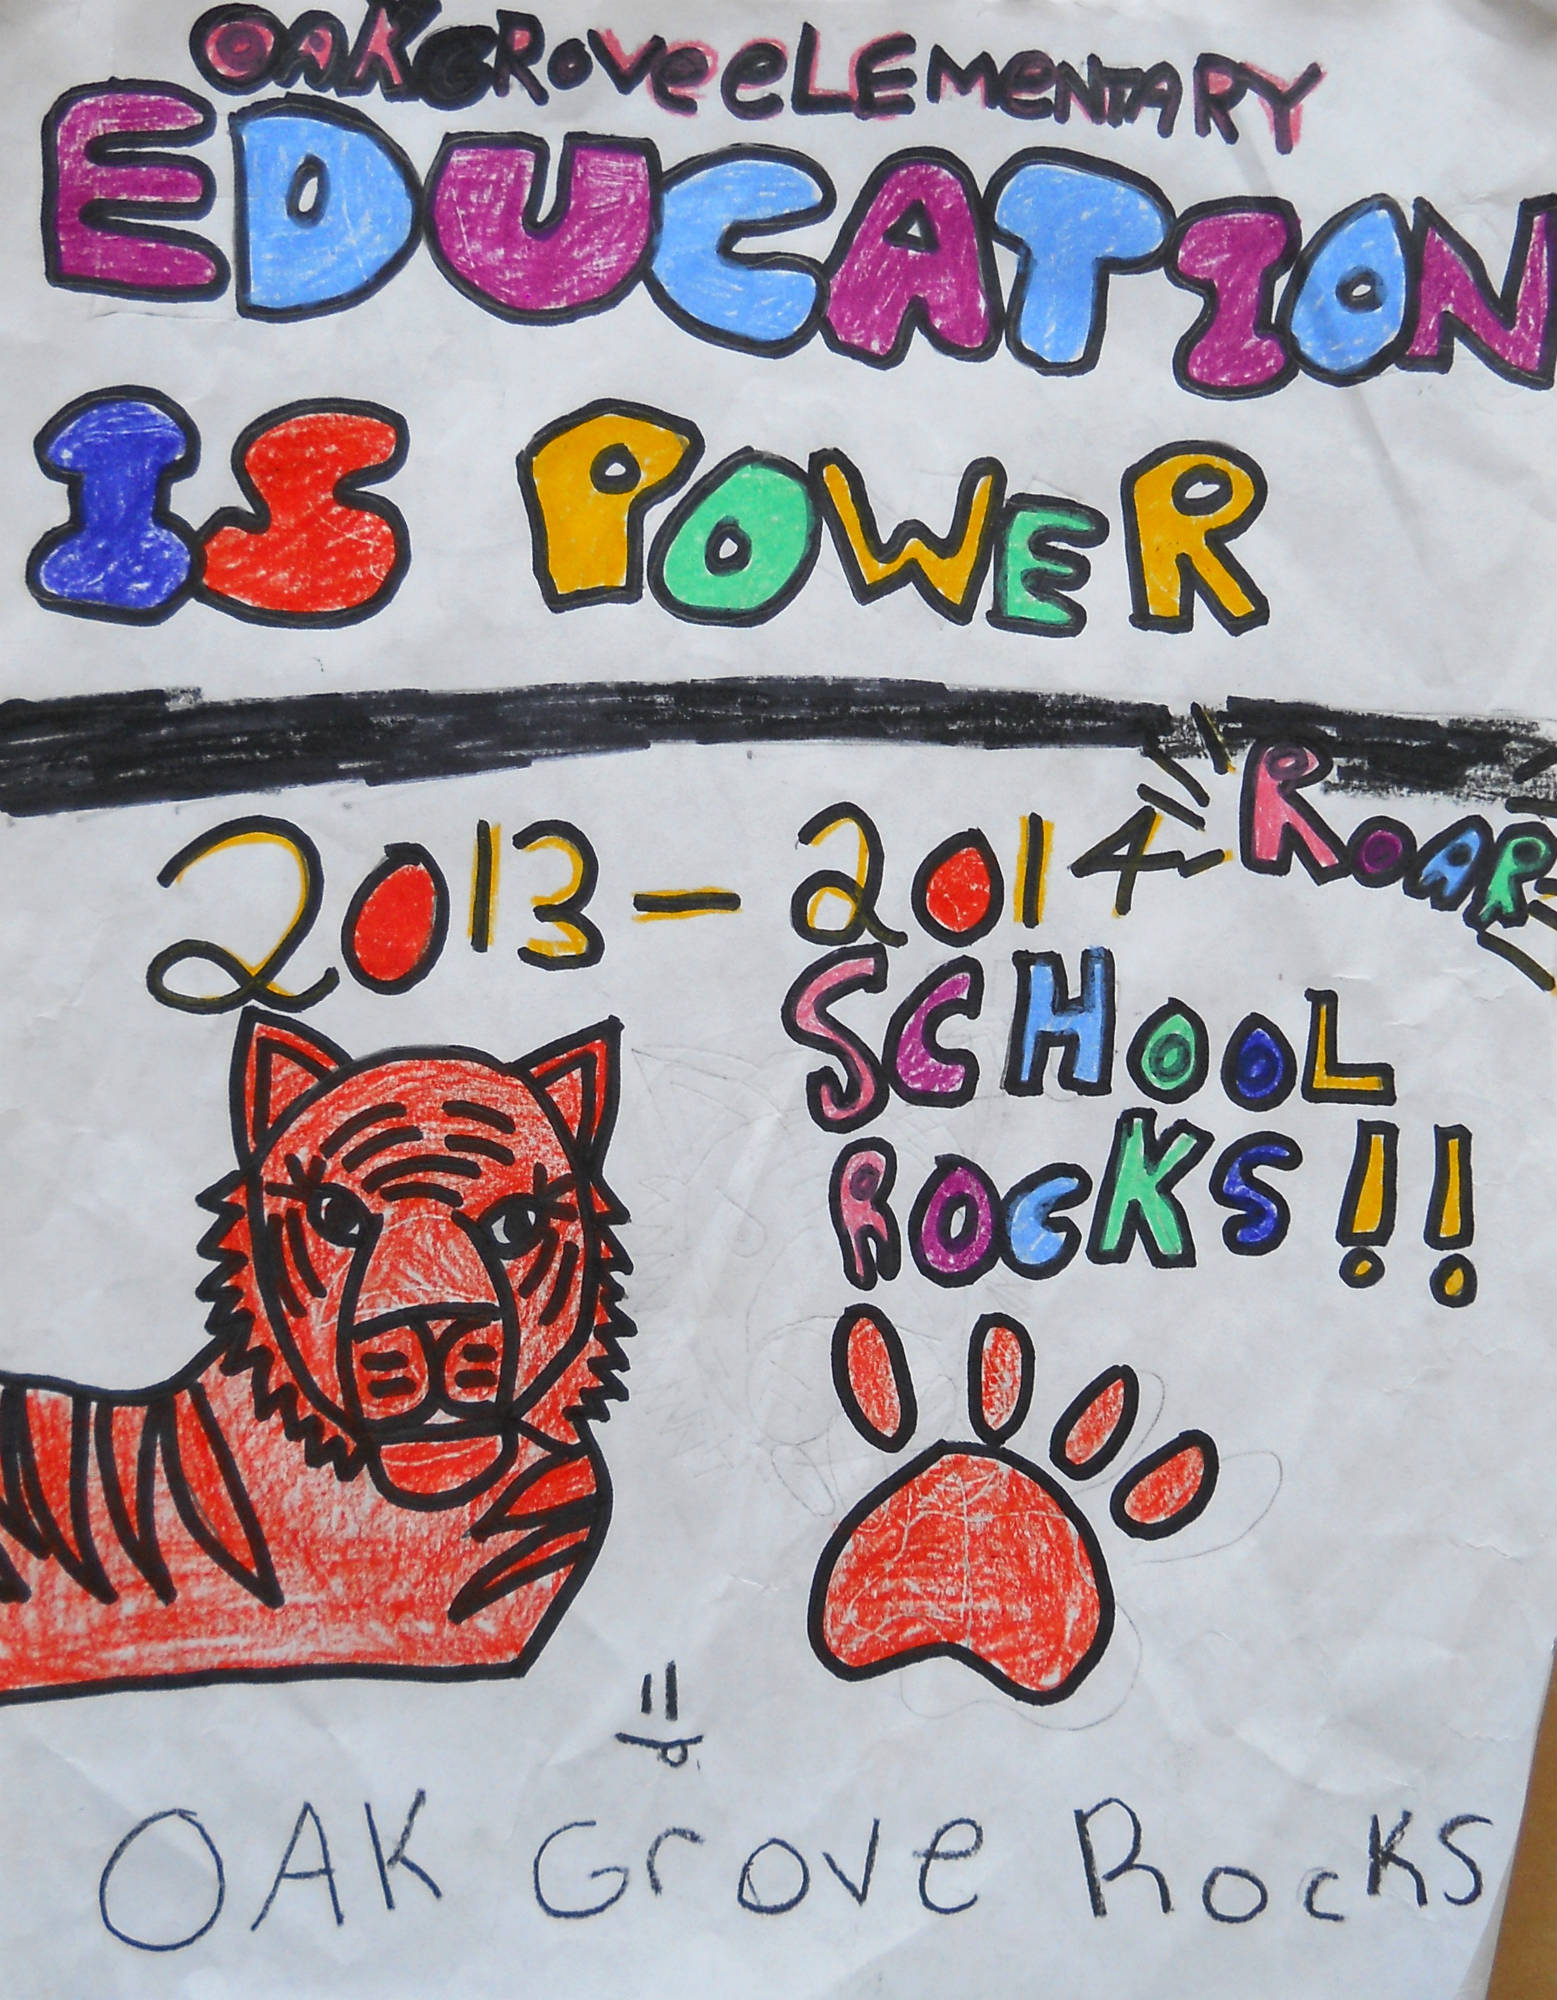 OAK GROVe eLEMeNTARY
EDUCATION
IS POWER
2013 - 2014
ROAR
SCHOOL
ROCKS!!
OAK Grove Rocks